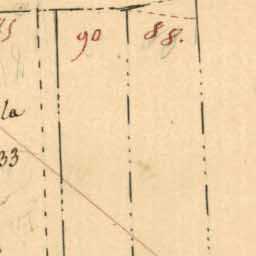 90
88.
la
33